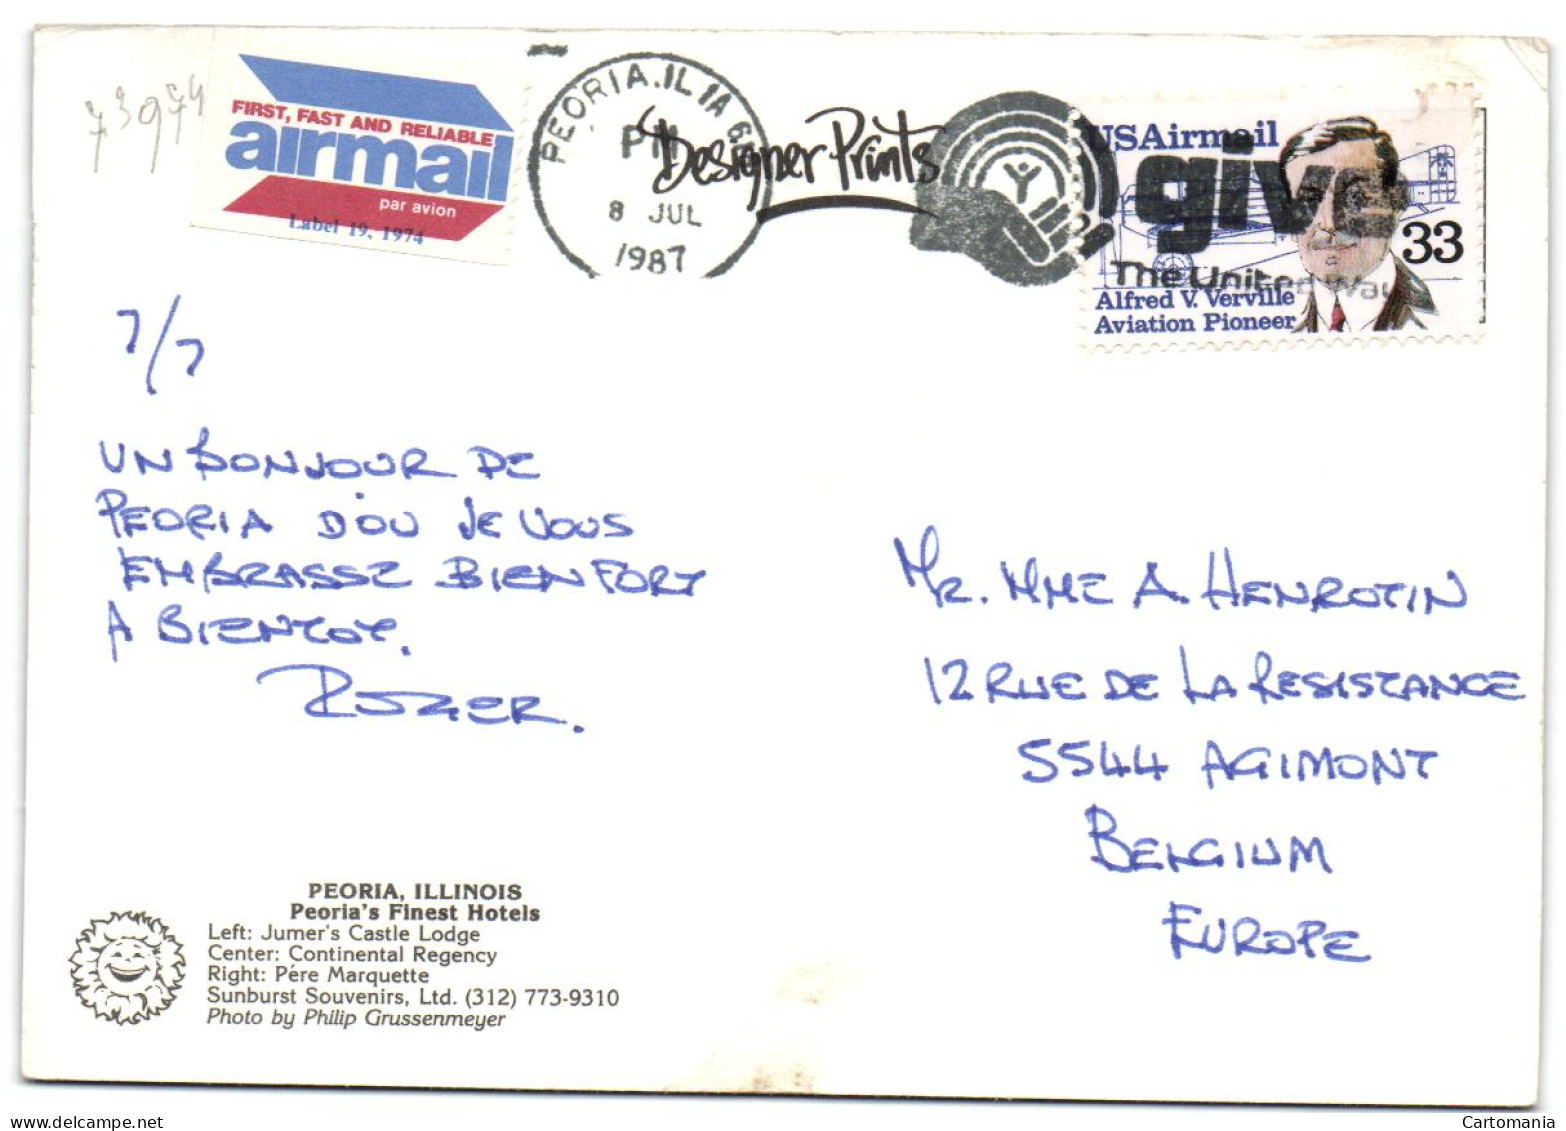 73974
FIRST, FAST AND RELIABLE
airmail
par avion
Label 19, 1974
PEORIA.IL 1A 616
PM
8 JUL
1987
Designer Prints
give
The United Way
USAirmail
33
Alfred V. Verville
Aviation Pioneer
7/7
UN BONJOUR DE
PEORIA D'OU JE VOUS
EMBRASSE BIEN FORT
A BIENTOT.
ROGER.
MR. MME A. HENROTIN
12 RUE DE LA RESISTANCE
5544 AGIMONT
BELGIUM
EUROPE
PEORIA, ILLINOIS
Peoria's Finest Hotels
Left: Jumer's Castle Lodge
Center: Continental Regency
Right: Pére Marquette
Sunburst Souvenirs, Ltd. (312) 773-9310
Photo by Philip Grussenmeyer
www.delcampe.net
Cartomania